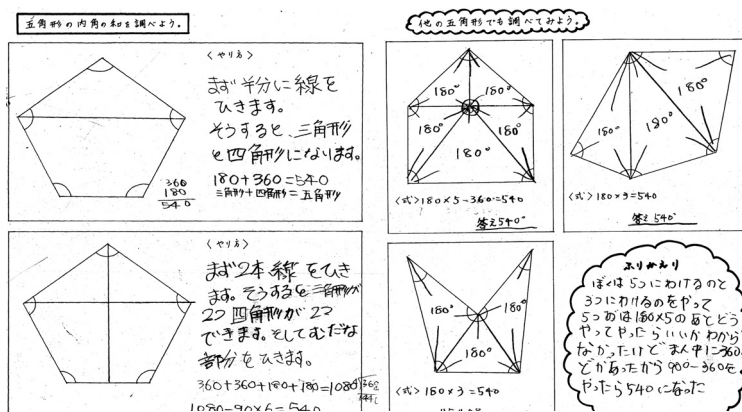 五角形の内角の和を調べよう。
〈やり方〉
まず半分に線を
ひきます。
そうすると、三角形
と四角形になります。
180+360=540
三角形+四角形=五角形
360
180
540
〈やり方〉
まず2本線をひき
ます。そうすると三角形が
2つ四角形が2つ
できます。そしてむだな
部分をひきます。
360+360+180+180=1080
1080-90×6=540
他の五角形でも調べてみよう。
180°
180°
180°
180°
180°
〈式〉180×5-360=540
答え540°
180°
180°
180°
〈式〉180×3=540
答え540°
180°
180°
180°
〈式〉180×3=540
ふりかえり
ぼくは5つにわけるのと
3つにわけるのをやって
5つの方は180×5のあとどう
やってやったらいいかわから
なかったけどまん中に360
どがあったから900-360を
やったら540になった